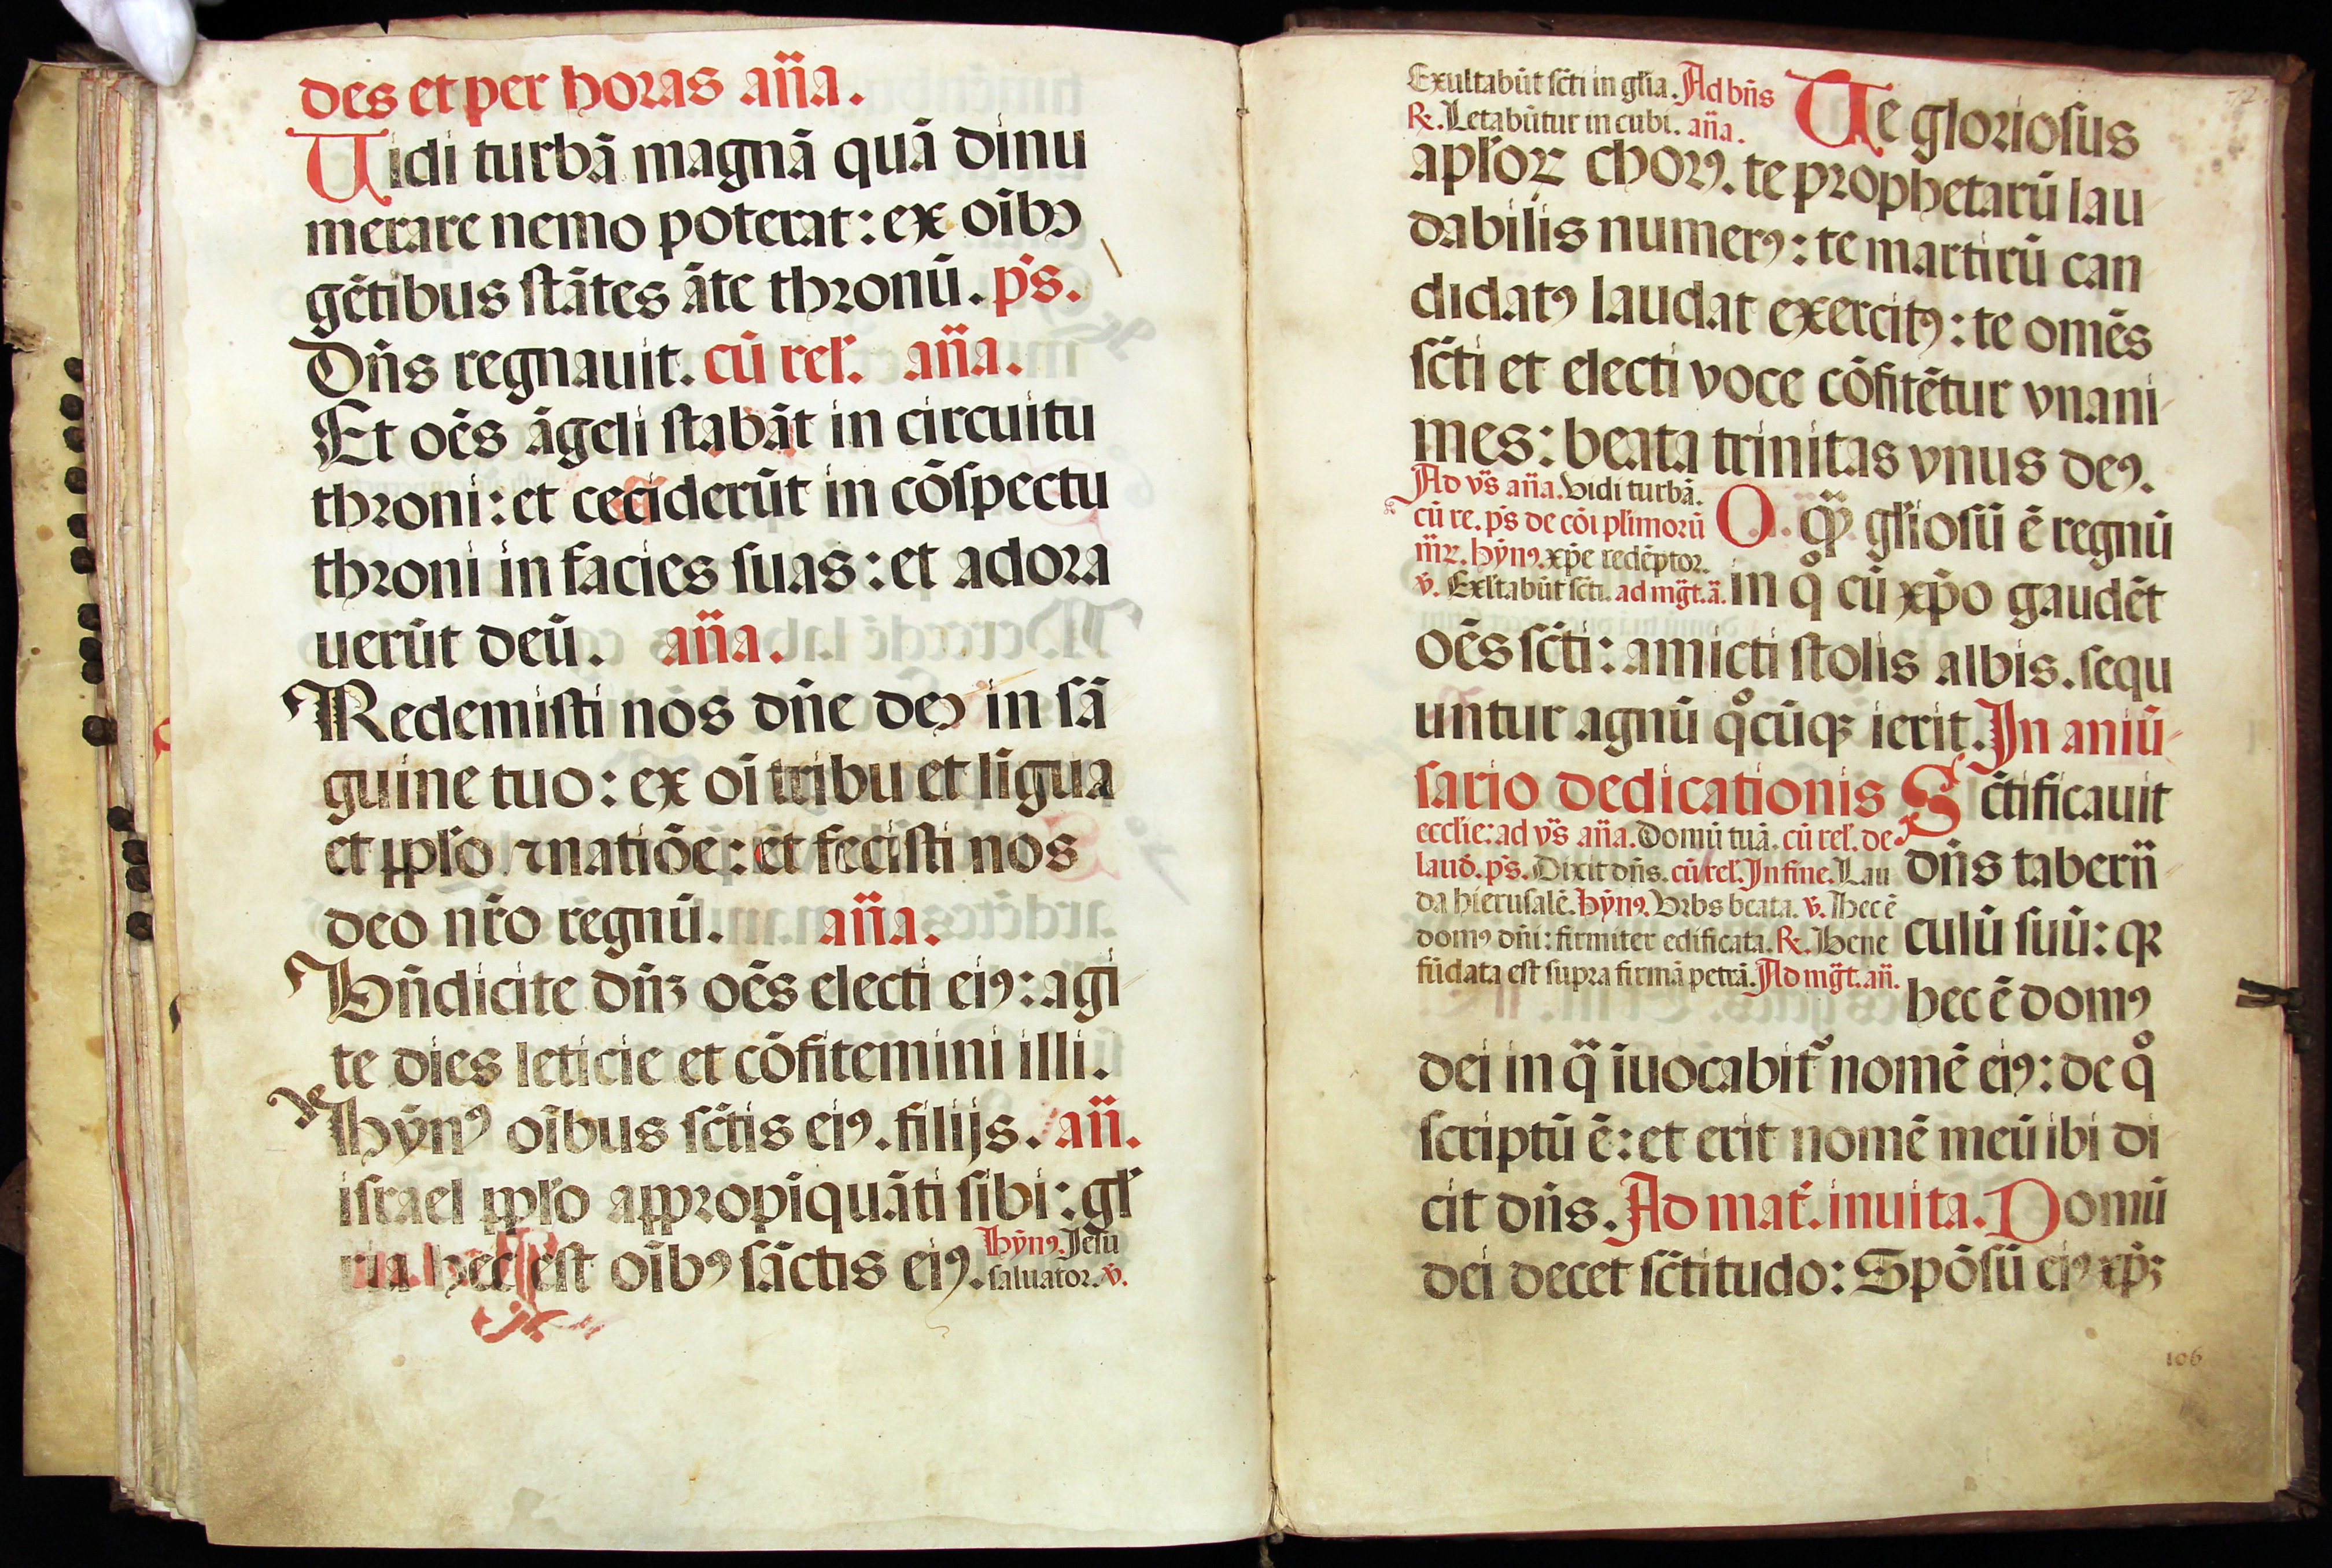 des et per horas an̄a.
Uidi turbā magnā quā dinu
merare nemo poterat: ex oībꝯ
gētibus ſtātes āte thꝛonū. p̄s.
Dn̄s regnauit. cū rel̄. an̄a.
Et oēs āgeli ſtabāt in circuitu
thꝛoni: et ceciderūt in cōſpectu
thꝛoni in facies ſuas: et adoꝛa
uerūt deū. an̄a.
Redemiſti nos dn̄e deꝯ in ſā
guine tuo: ex oī tribu et līgua
et ꝑpl̄o ⁊ natiōe: et feciſti nos
deo nr̄o regnū. an̄a.
Bn̄dicite dn̄ꝫ oēs electi eiꝰ: agi
te dies leticie et cōfitemini illi.
Hȳnꝰ oībus ſc̄tis eiꝰ. filijs. an̄.
iſrael ꝑpl̄o aꝑpꝛopīquāti ſibi: gl̄
ria hec eſt oībꝰ ſāctis eiꝰ. Hȳnꝰ. Jeſu
ſaluatoꝛ. v̄.
Exultabūt ſc̄ti in gl̄ia. Ad bn̄s
℞. Letabūtur in cubi. an̄a.
Te gloꝛioſus
apl̄oꝝ choꝛꝰ. te pꝛophetarū lau
dabilis numerꝰ: te martirū can
didatꝰ laudat exercitꝰ: te omēs
ſc̄ti et electi voce cōfitētur vnani
mes: beata trinitas vnus deꝰ.
Ad vs̄ an̄a. Vidi turbā.
cū re. p̄s de cōi pl̄imoꝛū
m̄ꝝ. hȳnꝰ. xp̄e redēptoꝛ.
v̄. Exl̄tabūt ſc̄ti. ad mḡt. ā.
O qꝫ̄ gl̄ioſū ē regnū
in qͦ cū xp̄o gaudēt
oēs ſc̄ti: amicti ſtolis albis. ſequ
untur agnū qͦcūqꝫ ierit. In aniū
ſario dedicationis
eccl̄ie: ad vs̄ an̄a. Domū tuā. cū rel̄. de
laud̄. p̄s. Dixit dn̄s. cū rel̄. In fine. Lau
da hieruſalē. Hȳnꝰ. Vꝛbs beata. v̄. Hec ē
domꝰ dn̄i: firmiter edificata. ℞. Bene
fūdata eſt ſupra firmā petrā. Ad mḡt. an̄.
Sc̄tificauit
dn̄s tabern̄
culū ſuū: qꝫ
hec ē domꝰ
dei in qᷓ iuocabit᷑ nomē eiꝰ: de qͦ
ſcriptū ē: et erit nomē meū ibi di
cit dn̄s. Ad mat̄. inuita. Domū
dei decet ſc̄titudo: Spōſū eiꝰ xp̄ꝫ
106